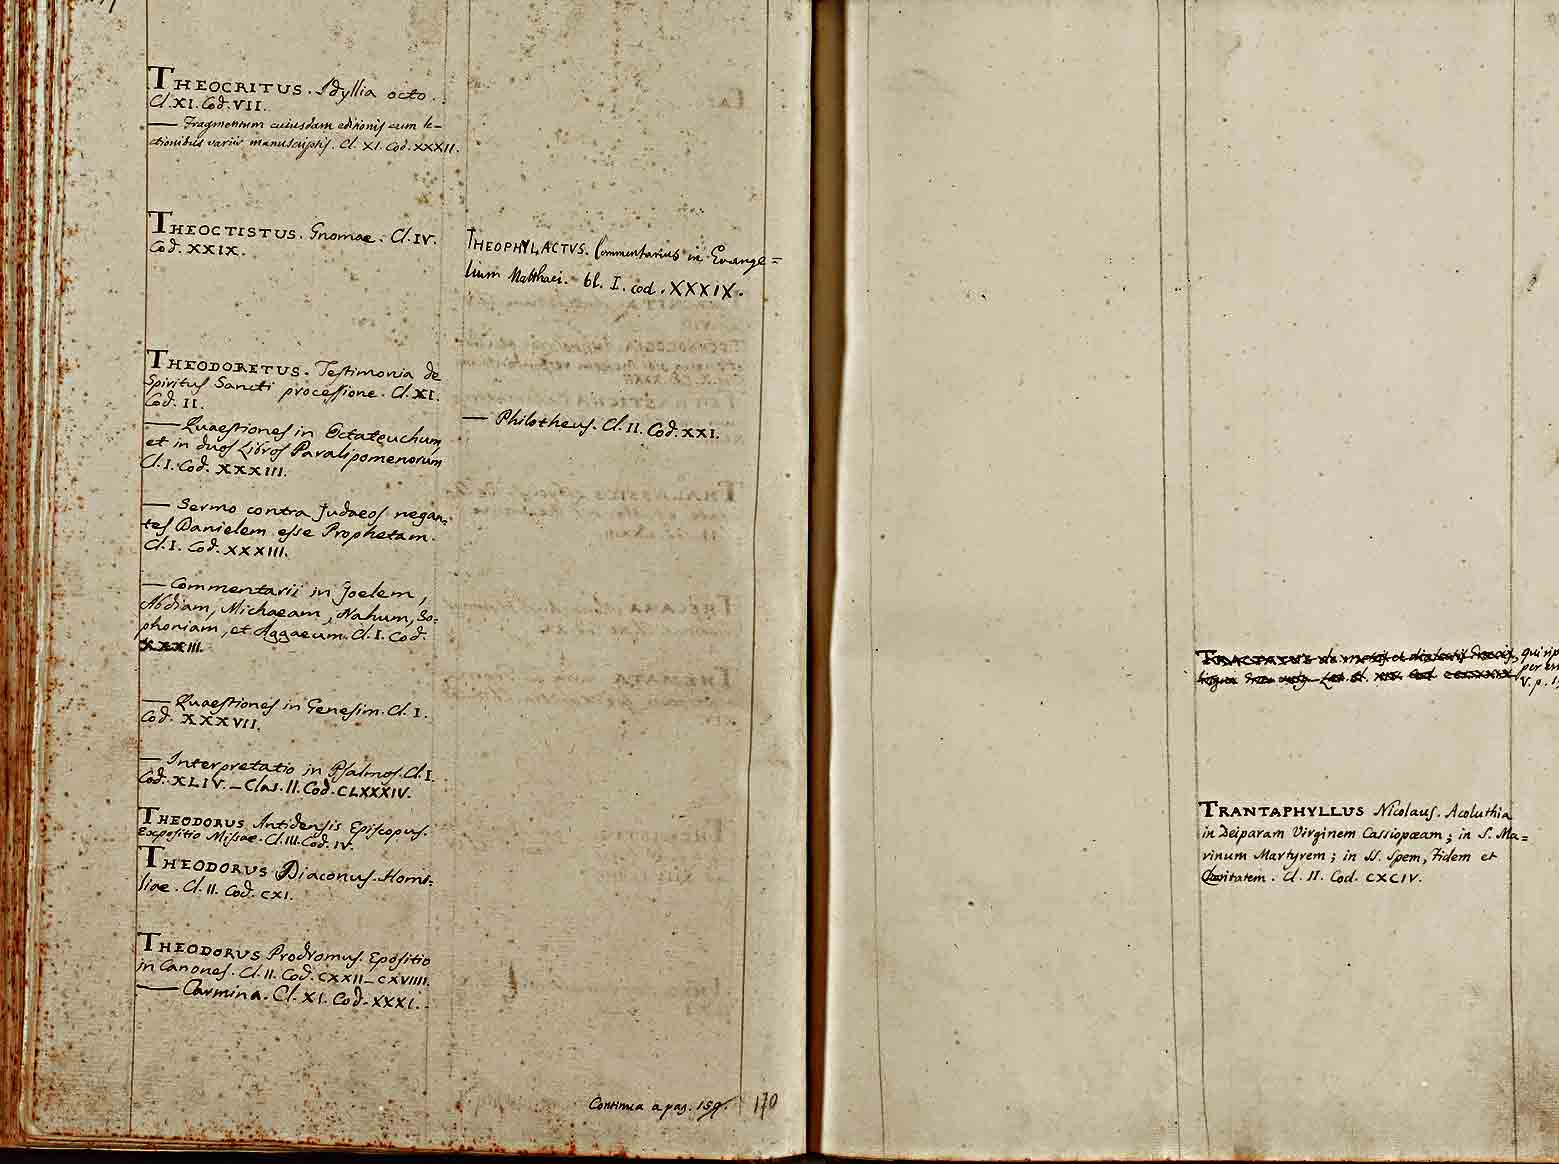 THEOCRITUS. Idyllia octo.
Cl. XI. Cod. VII.
— Fragmentum cuiusdam editionis cum le-
ctionibus variis manuscriptis. Cl. XI. Cod. XXXII.
THEOCTISTUS. Gnomae. Cl. IV.
Cod. XXIX.
THEODORETUS. Testimonia de
Spiritus Sancti processione. Cl. XI.
Cod. II.
— Quaestiones in Octateuchum
et in duos Libros Paralipomenorum
Cl. I. Cod. XXXIII.
— Sermo contra Judaeos negan=
tes Danielem esse Prophetam.
Cl. I. Cod. XXXIII.
— Commentarii in Joelem,
Abdiam, Michaeam, Nahum, So=
phoniam, et Aggaeum. Cl. I. Cod.
XXXIII.
— Quaestiones in Genesim. Cl. I.
Cod. XXXVII.
— Interpretatio in Psalmos. Cl. I.
Cod. XLIV. — Clas. II. Cod. CLXXXIV.
THEODORUS Antidensis Episcopus.
Expositio Missae. Cl. III. Cod. IV.
THEODORUS Diaconus. Homi=
liae. Cl. II. Cod. CXI.
THEODORUS Prodromus. Epositio
in Canones. Cl. II. Cod. CXXII — CXVIIII.
— Carmina. Cl. XI. Cod. XXXI.
THEOPHYLACTVS. Commentarius in Evange=
lium Matthaei. bl. I. cod. XXXIX.
— Philotheus. Cl. II. Cod. XXI.
Continua a pag. 159.
170
TRACTATUS de
V. p.
TRANTAPHYLLUS Nicolaus. Acoluthia
in Deiparam Virginem Cassiopæam; in S. Ma=
rinum Martyrem; in SS. Spem, Fidem et
Charitatem. Cl. II. Cod. CXCIV.